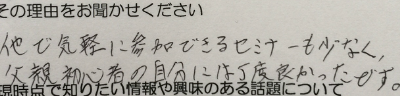 その理由をお聞かせください
他で気軽に参加できるセミナーも少なく、
父親初心者の自分には丁度良かったです。
現時点で知りたい情報や興味のある話題について